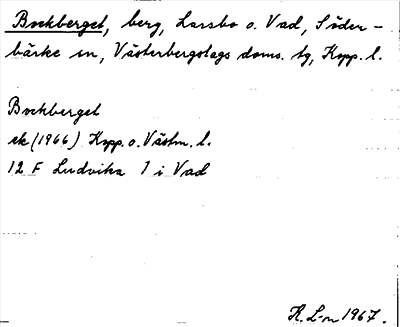 Bockberget, berg, Larsbo o. Vad, Söder-
bärke sn, Västerbergslags doms. tg, Kopp. l.
Bockberget
ek (1966) Kopp. o. Västm. l.
12 F Ludvika 1 i Vad
H. L-n 1967.